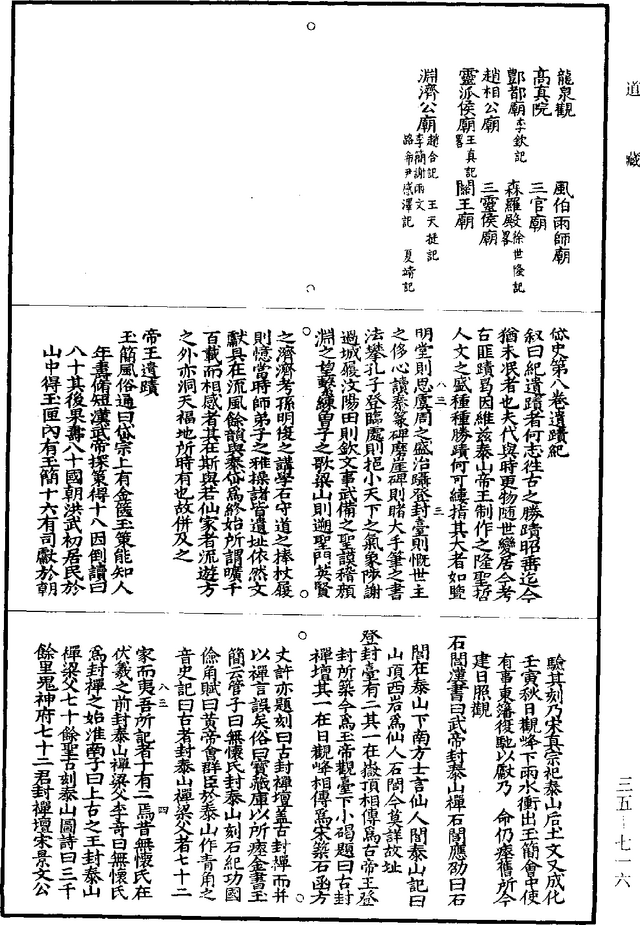 道藏
龍泉觀 風伯雨師廟
高真院 三官廟
酆都廟李欽記 森羅殿徐世隆記畧
趙相公廟 三靈侯廟
靈派侯廟王真記畧 閻王廟
淵濟公廟趙合記 王天挺記 李簡謝雨文 路希尹感澤記 夏靖記
岱史第八卷遺蹟紀
叙曰紀遺蹟者何志徃古之勝蹟昭垂迄今
猶未泯者也夫代與時更物随世變居今考
右匪蹟曷因維兹泰山帝王制作之隆聖哲
人文之盛種種勝蹟何可縷指其大者如覽
明堂則思虞周之盛治躡登封臺則慨世主
之侈心讀泰篆碑磨崖碑則睹大手筆之書
法攀孔子登臨處則挹小天下之氣象陟謝
過城履汶陽田則欽文事武備之聖謨稽顏
淵之望繫練曽子之歌梁山則遡聖門英賢
之濟濟考孫明復之講學石守道之捧杖屨
則憶當時師弟子之雅操諸皆遺址依然文
獻具在流風餘韻與泰岱為終始所謂曠千
百載而相感者其在斯與若仙家者流遊方
之外亦洞天福地所時有也故併及之
帝王遺蹟
玉簡風俗通曰岱宗上有金篋玉策能知人
年壽脩短漢武帝探策得十八因倒讀曰
八十其後果壽八十國朝洪武初居民於
山中得玉匣內有玉簡十六有司獻於朝
八三 三
驗其刻乃宋真宗祀泰山后土文又成化
壬寅秋日觀峰下雨水衝出玉簡會中使
有事東藩復馳以獻乃 命仍瘞舊所今
建日照觀
石閭漢書曰武帝封泰山禪石閭應劭曰石
閭在泰山下南方士言仙人閭泰山記曰
山頂西岩為仙人石閭今莫詳故址
登封臺有二其一在嶽頂相傳為古帝王登
封所築今為玉帝觀臺下小碣題曰古封
禪壇其一在日觀峰相傳為宋築石函方
丈許亦題刻曰古封禪壇蓋古封禪而并
以禪言誤矣俗曰寶藏庫以所瘞金書玉
簡云管子曰無懷氏封泰山刻石紀功國
儉角賦曰黃帝會群臣於泰山作青角之
音史記曰古者封泰山禪梁父者七十二
家而夷吾所記者十有二焉昔無懷氏在
伏羲之前封泰山禪梁父李奇曰無懷氏
為封禪之始淮南子曰上古之王封泰山
禪梁父七十餘聖古刻泰山圖詩曰三千
餘里鬼神府七十二君封禪壇宋景文公
八三 四
三五—七一六